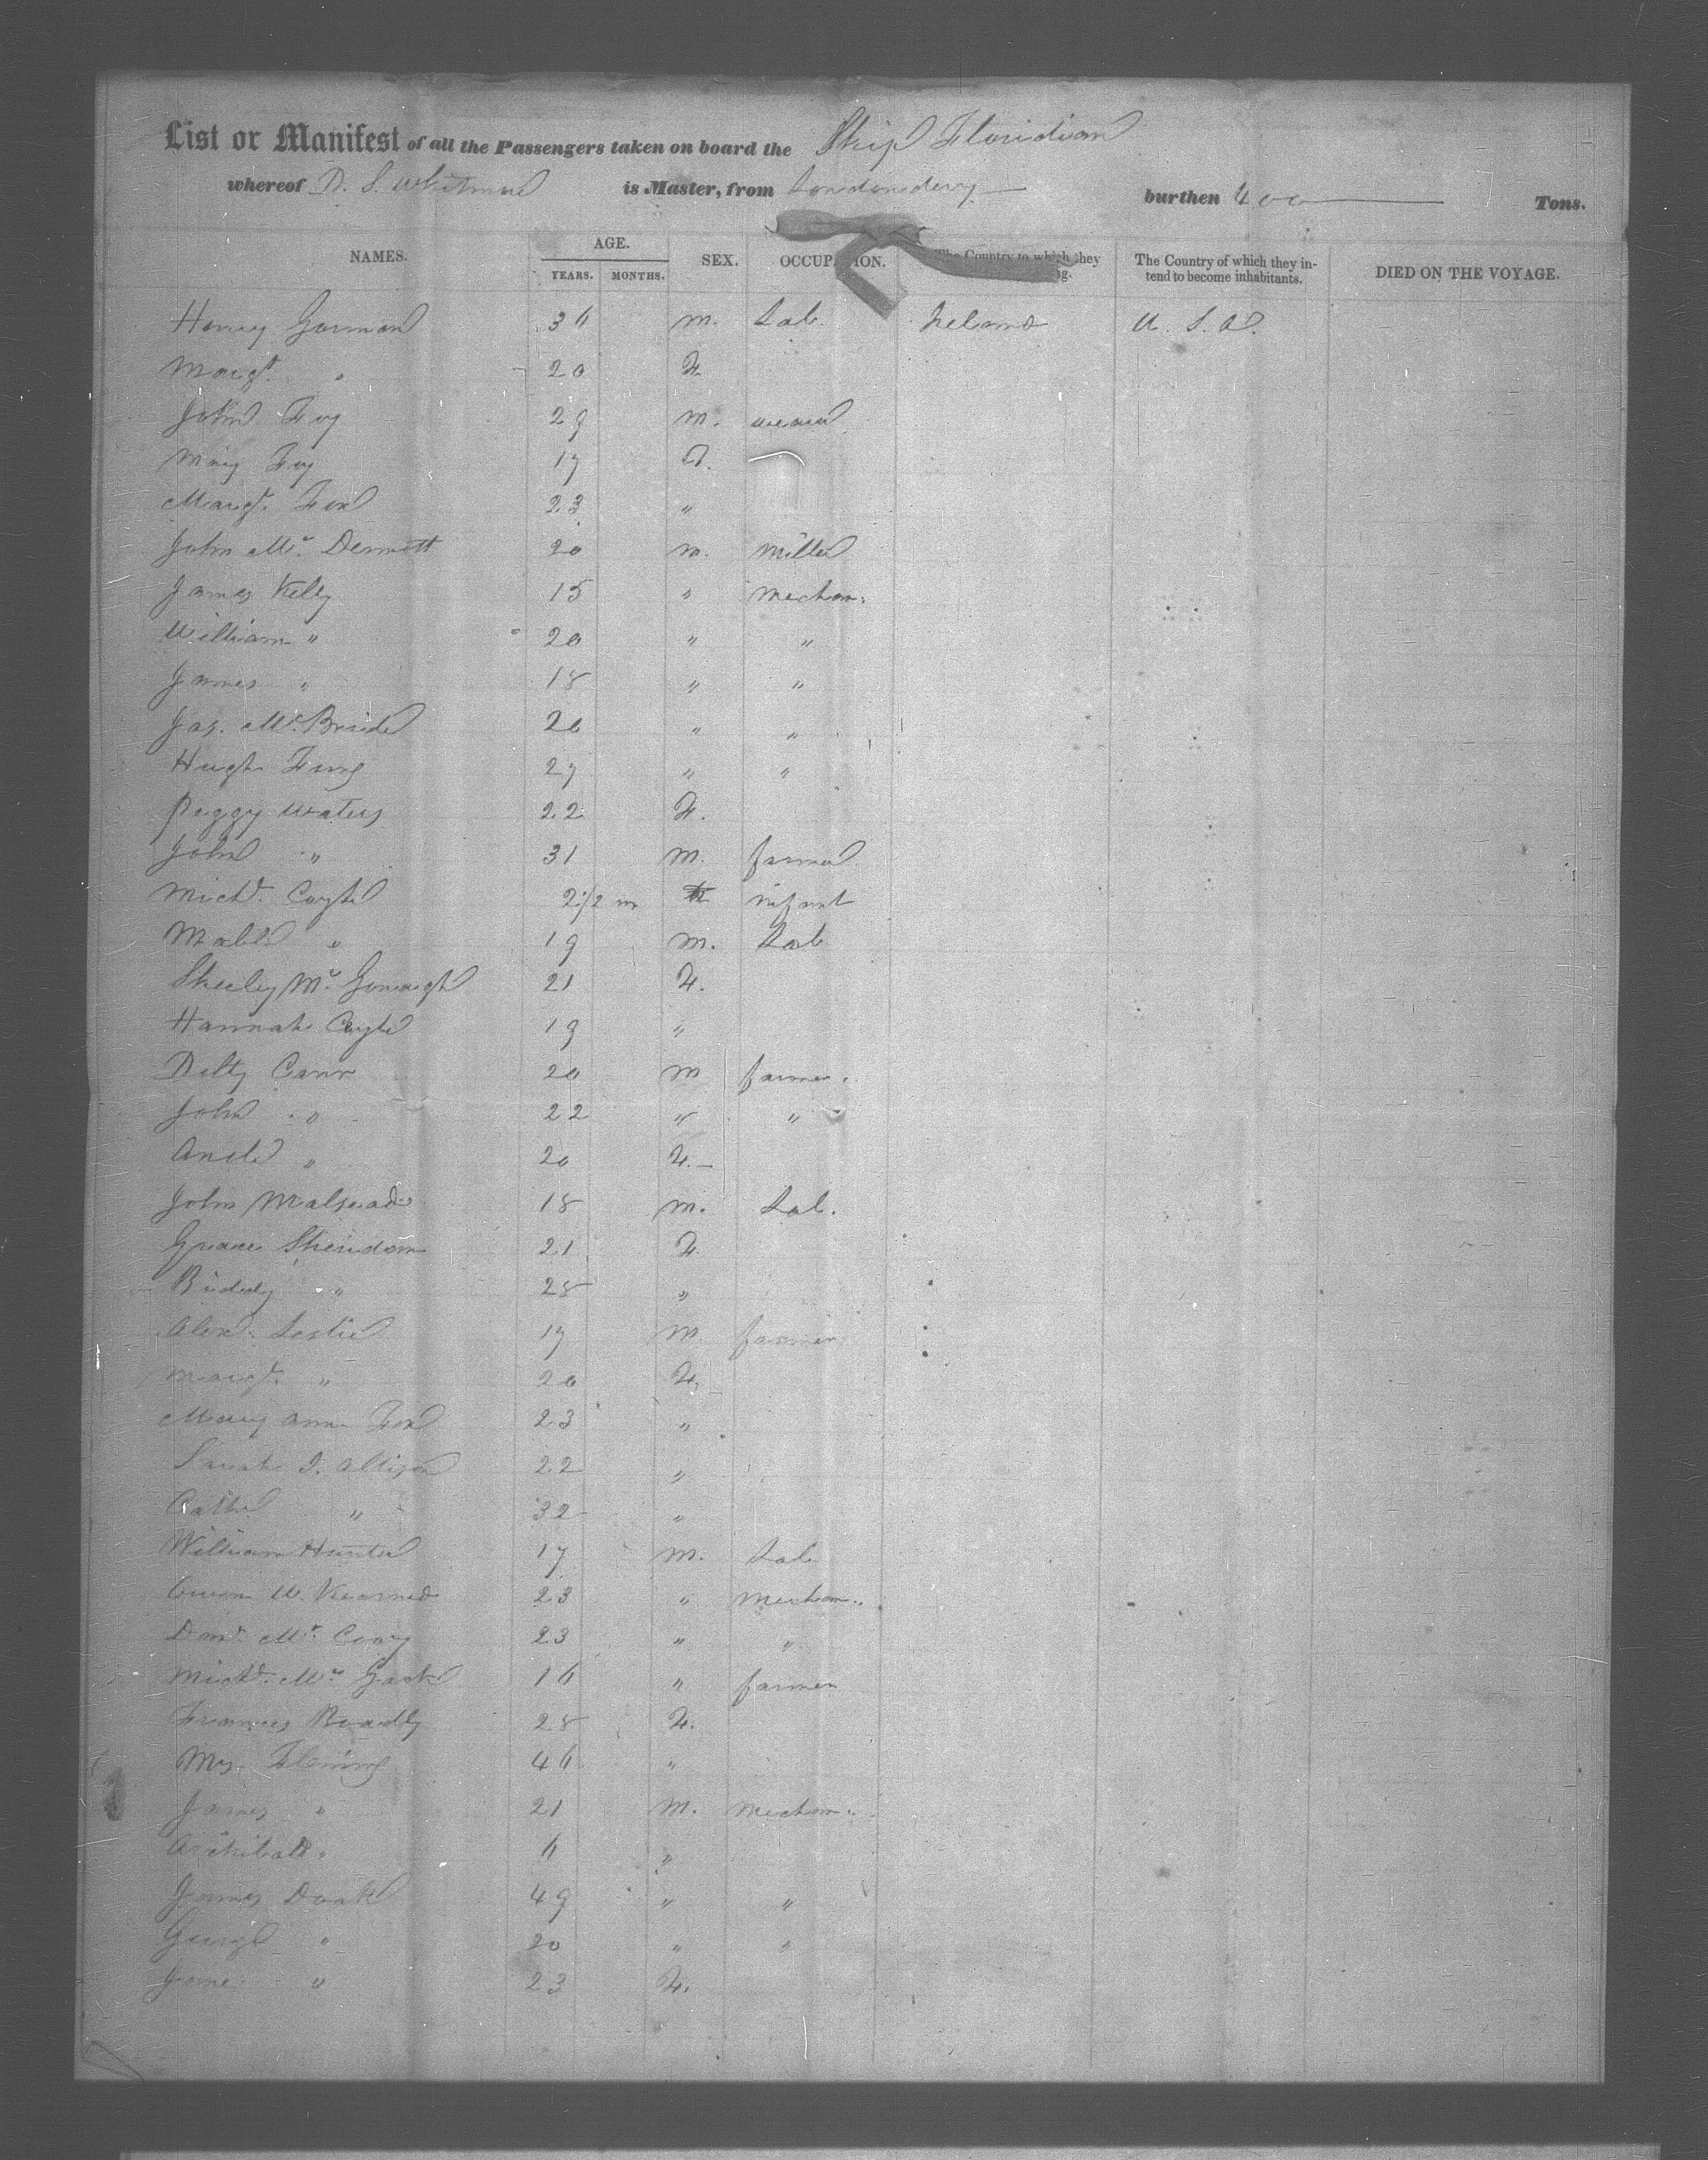 List or Manifest of all the Passengers taken on board the Ship Floridian
whereof D. S. Whitman is Master, from Londonderry burthen 400 Tons.
NAMES. AGE. YEARS. MONTHS. SEX. OCCUPATION. The Country to which they The Country of which they intend to become inhabitants. DIED ON THE VOYAGE.
Henry Gorman 36 M. Lab. Ireland U. S. A.
Margt. " 20 F.
John Foy 29 M. weaver
Mary Foy 17 F.
Margt. Fox 23 "
John Mc. Dermott 20 M. Miller
James Kelly 15 " Mechan.
William " 20 " "
James " 18 " "
Jas. Mc. Bride 20 " "
Hugh 27 " "
Peggy Waters 22 F.
John " 31 M. farmer
Michl. Coyle 2 1/2 m infant
" 19 M. Lab.
Mc. Gonaigh 21 F.
Hannah Coyle 19 "
Carr 20 M farmer.
John " 22 " "
" 20 F.
John Malsead 18 M. Lab.
Grace Sheridan 21 F.
Biddy " 28 "
Alex. Leslie 17 M. farmer
Margt. " 20 F.
Mary Ann Fox 23 "
Sarah J. Allison 22 "
Cathe. " 32 "
William Hunter 17 M. Lab
23 " Mechan.
Mc. 23 " "
Michl. Mc. 16 " farmer
Frances 28 F.
Mrs. Fleming 46 "
James " 21 M. Mechan.
Archibald " 6 "
James Doak 49 " "
George " 20 " "
Jane " 23 F.